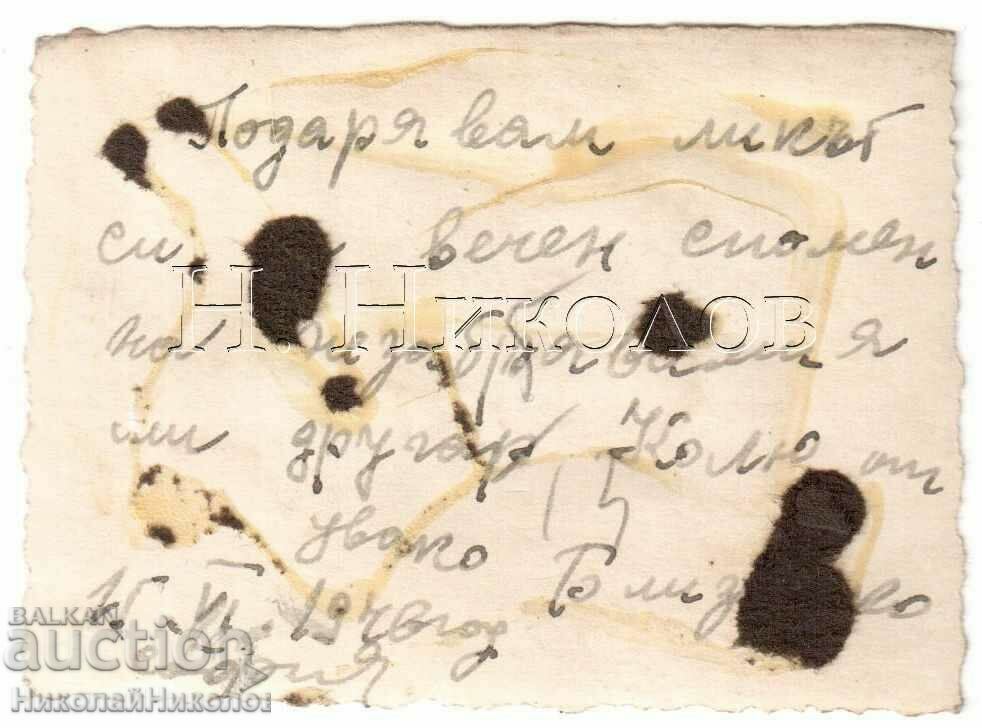 Подарявам ликът
си вечен спомен
на незабравимия
ми другар Колю от
Н. Николов
VI. год
София
BALKAN
auction
НиколайНиколов